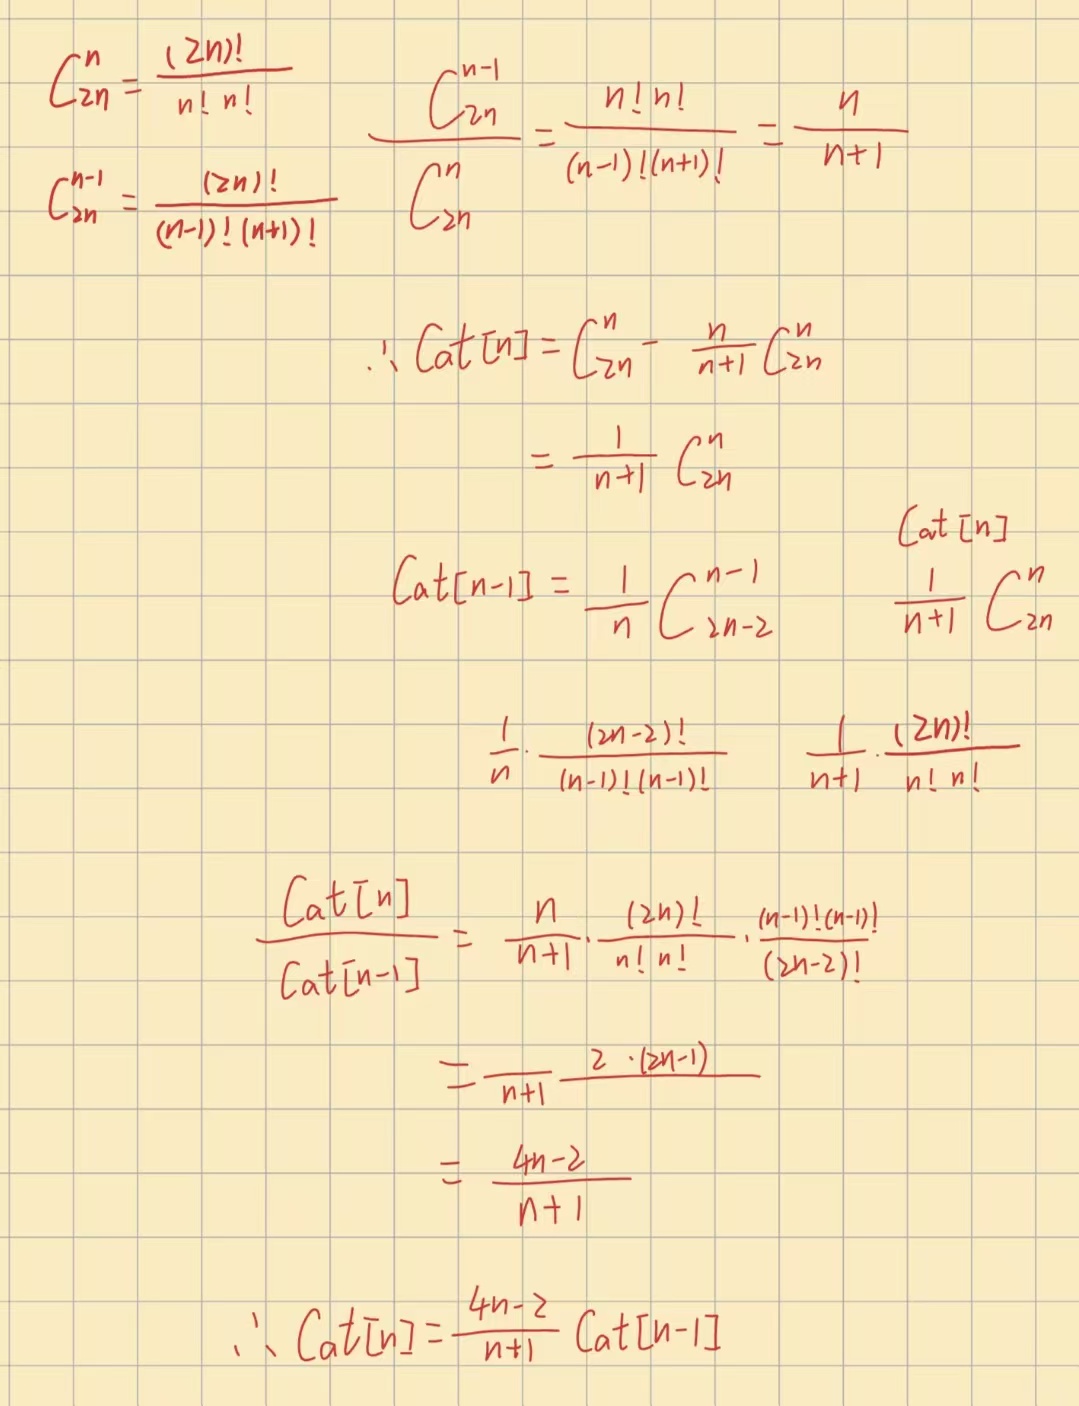 C_{2n}^{n} = \frac{(2n)!}{n! n!}
C_{2n}^{n-1} = \frac{(2n)!}{(n-1)!(n+1)!}
\frac{C_{2n}^{n-1}}{C_{2n}^{n}} = \frac{n! n!}{(n-1)!(n+1)!} = \frac{n}{n+1}
∴ Cat[n] = C_{2n}^{n} - \frac{n}{n+1} C_{2n}^{n}
= \frac{1}{n+1} C_{2n}^{n}
Cat[n-1] = \frac{1}{n} C_{2n-2}^{n-1}
Cat[n]
\frac{1}{n+1} C_{2n}^{n}
\frac{1}{n} · \frac{(2n-2)!}{(n-1)!(n-1)!}
\frac{1}{n+1} · \frac{(2n)!}{n! n!}
\frac{Cat[n]}{Cat[n-1]} = \frac{n}{n+1} · \frac{(2n)!}{n! n!} · \frac{(n-1)!(n-1)!}{(2n-2)!}
= \frac{}{n+1} \frac{2·(2n-1)}{}
= \frac{4n-2}{n+1}
∴ Cat[n] = \frac{4n-2}{n+1} Cat[n-1]